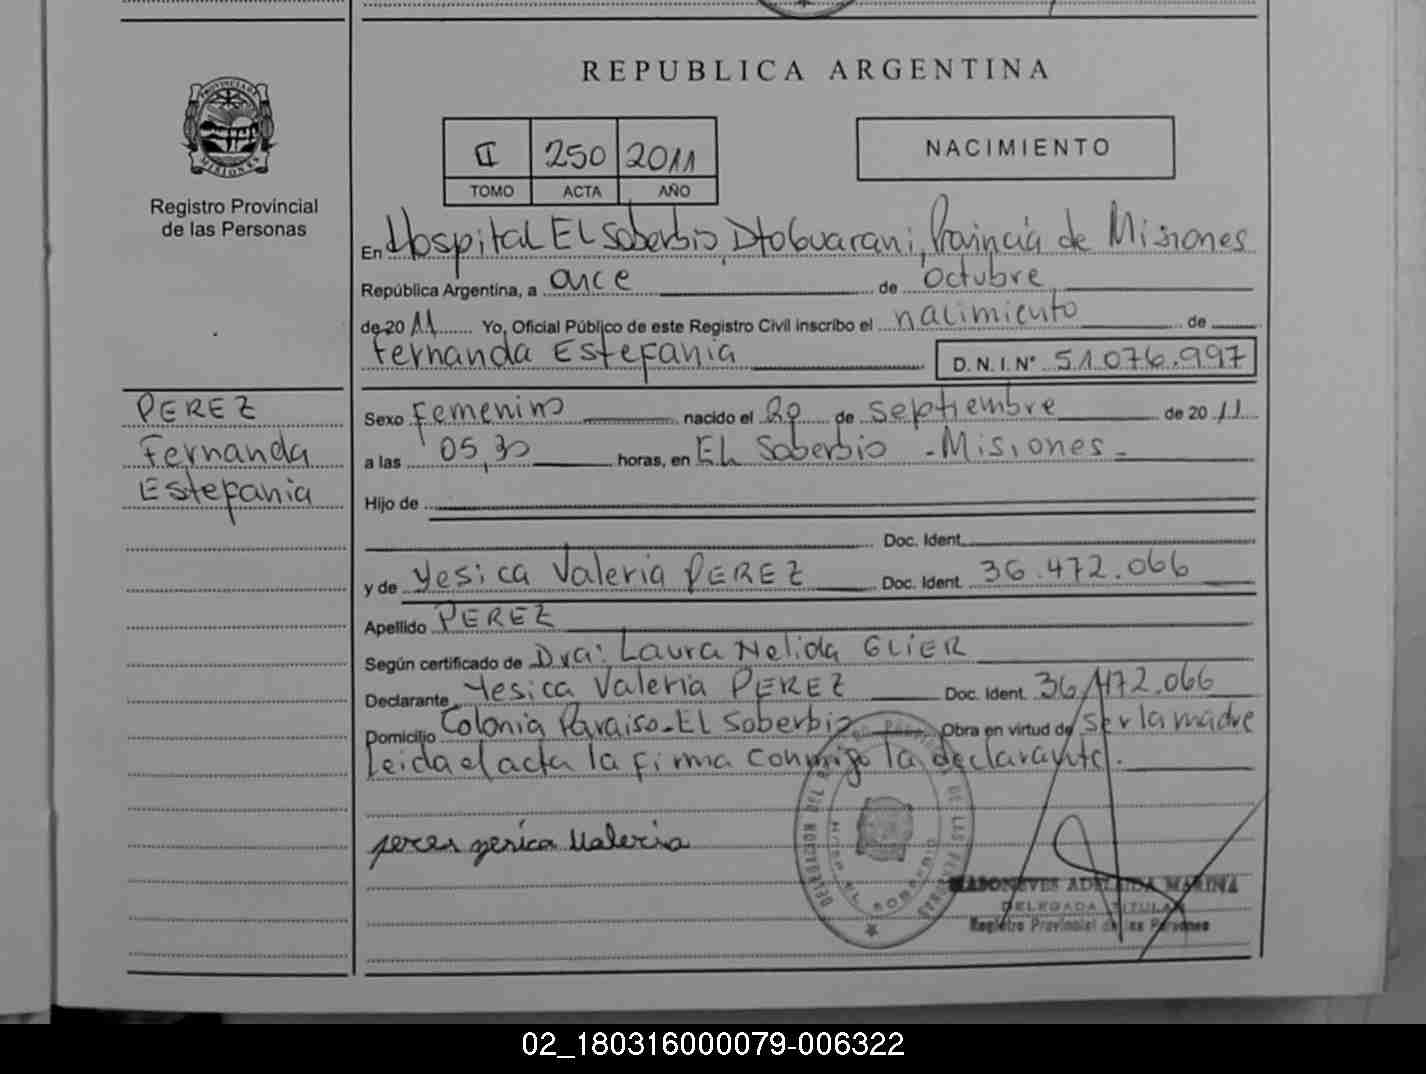 REPUBLICA ARGENTINA
PROVINCIA DE MISIONES
Registro Provincial
de las Personas
II 250 2011
TOMO ACTA AÑO
NACIMIENTO
En Hospital El Soberbio, Dto Guarani, Provincia de Misiones
República Argentina, a once de octubre
de 2011 Yo, Oficial Público de este Registro Civil inscribo el nacimiento de
Fernanda Estefania D.N.I. Nº 51.076.997
PEREZ
Fernanda
Estefania
Sexo Femenino nacido el 29 de septiembre de 2011
a las 05,30 horas, en El Soberbio - Misiones -
Hijo de
Doc. Ident.
y de Yesica Valeria PEREZ Doc. Ident. 36.472.066
Apellido PEREZ
Según certificado de Dra: Laura Nelida GLIER
Declarante Yesica Valeria PEREZ Doc. Ident. 36.472.066
Domicilio Colonia Paraiso - El Soberbio Obra en virtud de ser la madre
Leida el acta la firma conmigo la declarante.
peres yesica Valeria
ADELAIDA MARINA
DELEGADA TITULAR
Registro Provincial de las Personas
02_180316000079-006322